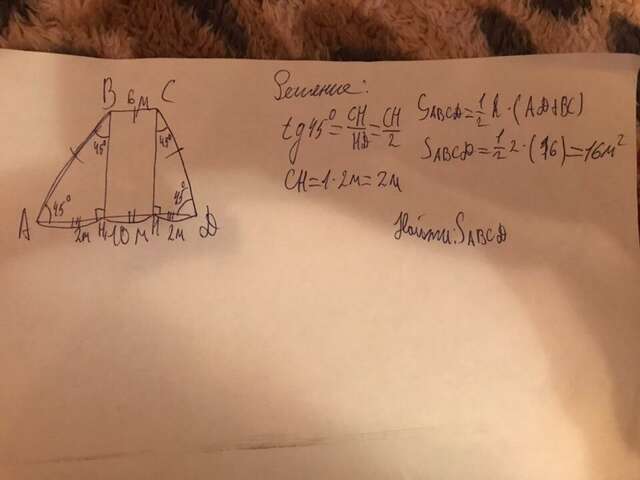 B 6 м C
45° 45°
45° 45°
A 2м H 10 м H 2м D
Решение:
tg45°=CH/HD=CH/2
CH=1·2м=2м
SABCD=1/2 h·(AD+BC)
SABCD=1/2 2·(16)=16м²
Найти: SABCD